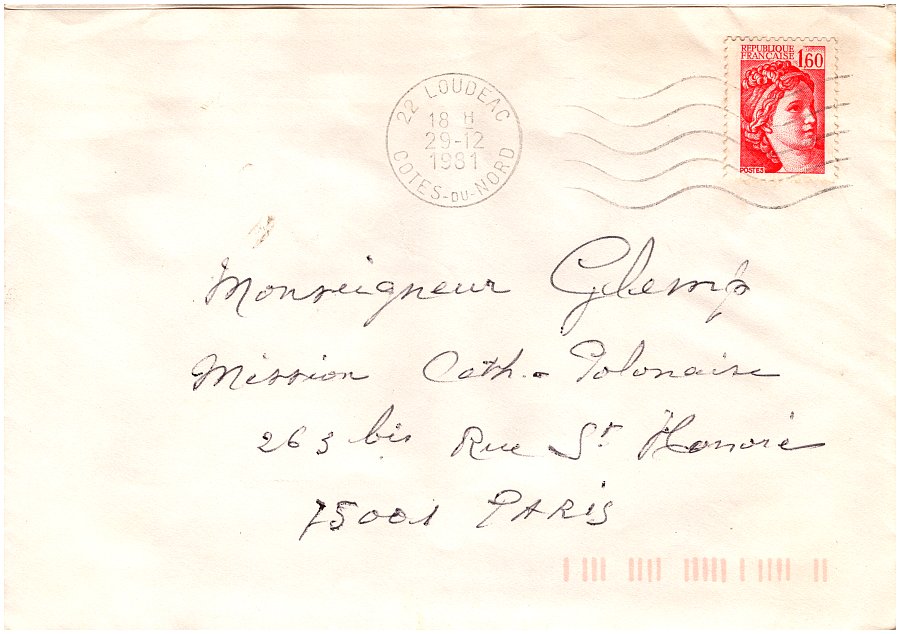 REPUBLIQUE
FRANCAISE 1,60
POSTES
22 LOUDEAC
18 H
29-12
1981
COTES-DU-NORD
Monseigneur Glemp
Mission Cath.- Polonaise
263 bis Rue St Honoré
75001 PARIS